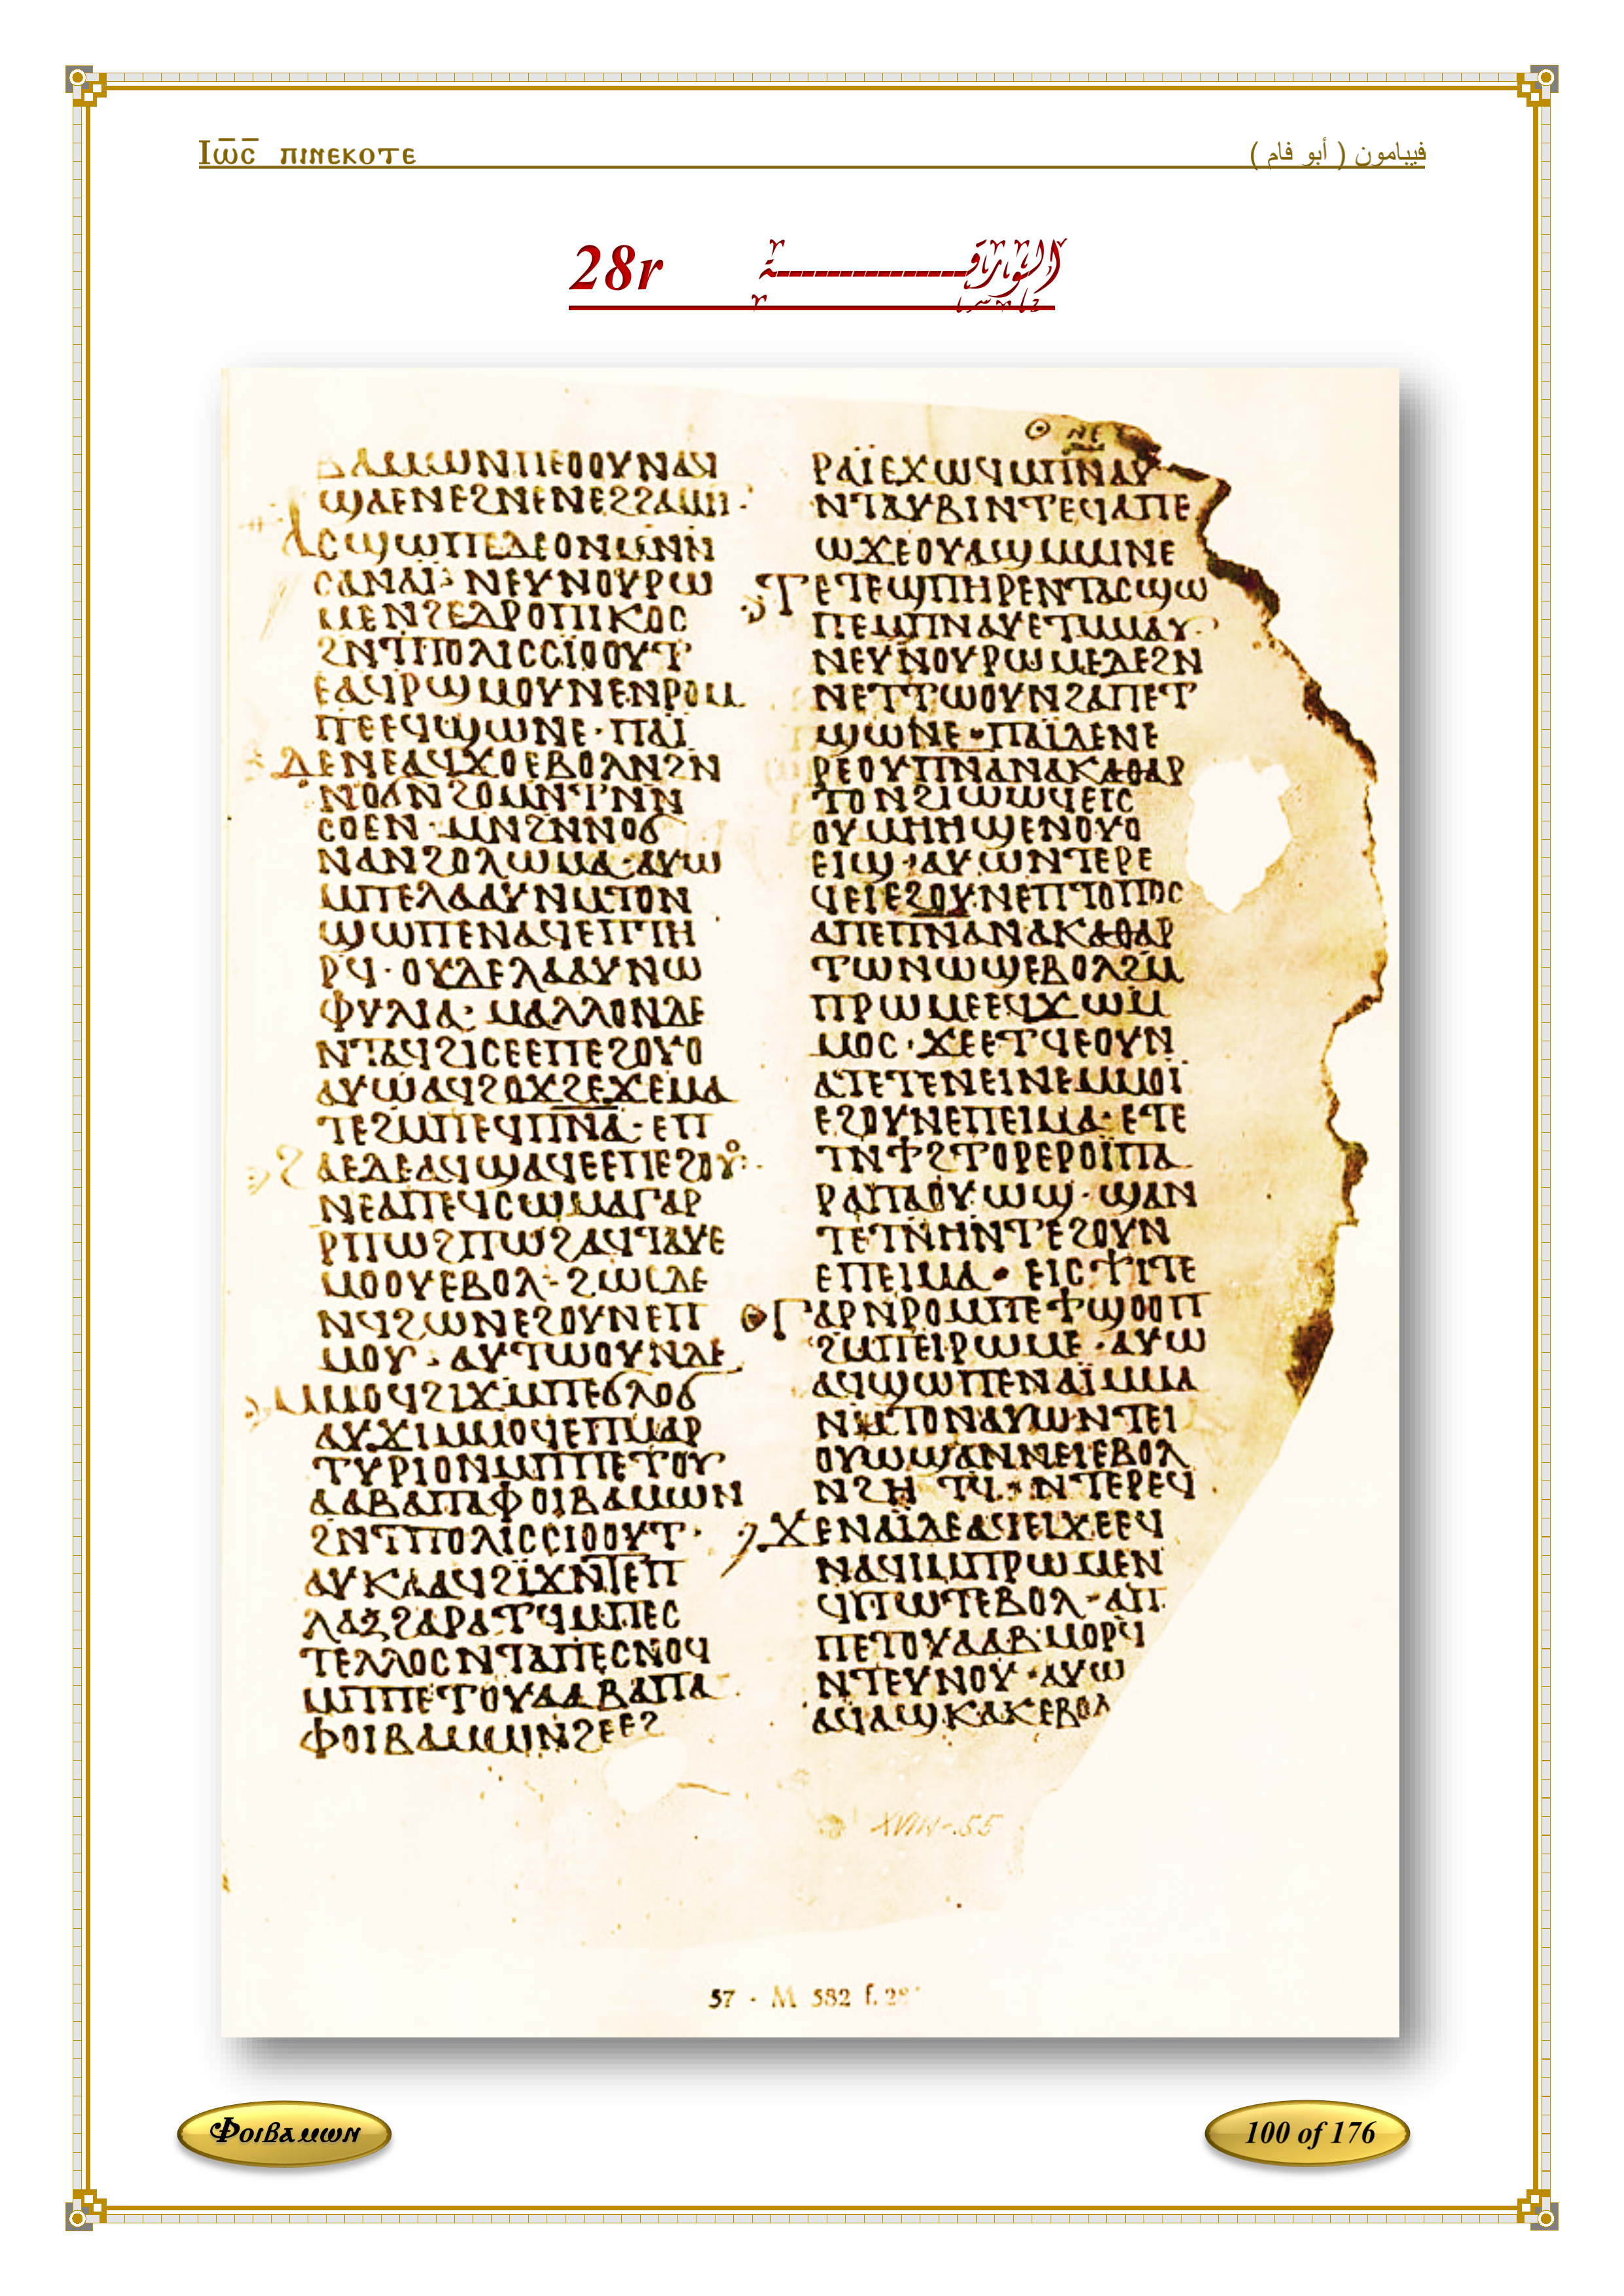 Ⲓⲱ̅ⲥ̅ ⲡⲓⲛⲉⲕⲟⲧⲉ
فيبامون ( أبو فام )
28r الورقة
ⲃⲁⲙⲱⲛⲡⲉⲟⲟⲩⲛⲁϥ
ϣⲁⲉⲛⲉϩⲛⲉⲛⲉϩϩⲁⲙⲏ·
ⲁⲥϣⲱⲡⲉⲇⲉⲟⲛⲙⲛⲛ
ⲥⲁⲛⲁⲓ̈· ⲛⲉⲩⲛⲟⲩⲣⲱ
ⲙⲉⲛϩⲉⲇⲣⲟⲡⲓⲕⲟⲥ
ϩⲛⲧⲡⲟⲗⲓⲥⲥⲓⲟⲟⲩⲧ
ⲉⲁϥⲣϣⲙⲟⲩⲛⲉⲛⲣⲟⲙ
ⲡⲉⲉϥϣⲱⲛⲉ· ⲡⲁⲓ̈
ⲇⲉⲛⲉⲁϥϫⲟⲉⲃⲟⲗⲛϩⲛ
ⲛⲟϭⲛϩⲟⲙⲛⲧⲛⲛ
ⲥⲟⲉⲓⲛ·ⲙⲛϩⲛⲛⲟϭ
ⲛⲁⲛϩⲟⲗⲱⲙⲁ·ⲁⲩⲱ
ⲙⲡⲉⲗⲁⲁⲩⲛⲙⲧⲟⲛ
ϣⲱⲡⲉⲛⲁϥⲉⲡⲧⲏ
ⲣϥ· ⲟⲩⲇⲉⲗⲁⲁⲩⲛⲱ
ⲫⲩⲗⲓⲁ· ⲙⲁⲗⲗⲟⲛⲇⲉ
ⲛⲧⲁϥϩⲓⲥⲉⲉⲡⲉϩⲟⲩⲟ
ⲁⲩⲱⲁϥϩⲟϫϩⲉϫⲉⲙⲁ
ⲧⲉϩⲙⲡⲉϥⲡⲛ̅ⲁ̅· ⲉⲡ
ϩⲁⲉⲇⲉⲁϥϣⲁϥⲉⲉⲡⲉϩⲟⲩⲟ·
ⲛⲉⲁⲡⲉϥⲥⲱⲙⲁⲅⲁⲣ
ⲣⲡⲱϩⲡⲱϩⲁϥⲧⲁⲩⲉ
ⲙⲟⲟⲩⲉⲃⲟⲗ· ϩⲱⲥⲇⲉ
ⲛϥϩⲱⲛⲉϩⲟⲩⲛⲉⲡ
ⲙⲟⲩ· ⲁⲩⲧⲱⲟⲩⲛⲇⲉ
ⲙⲙⲟϥϩⲓϫⲙⲡⲉϭⲗⲟϭ
ⲁⲩϫⲓⲙⲙⲟϥⲉⲡⲙⲁⲣ
ⲧⲩⲣⲓⲟⲛⲙⲡⲡⲉⲧⲟⲩ
ⲁⲁⲃⲁⲡⲁⲫⲟⲓⲃⲁⲙⲱⲛ
ϩⲛⲧⲡⲟⲗⲓⲥⲥⲓⲟⲟⲩⲧ·
ⲁⲩⲕⲁⲁϥϩⲓ̈ϫⲛⲧⲉⲡ
ⲗⲁⲝϩⲁⲣⲁⲧϥⲙⲡⲉⲥ
ⲧⲉⲗⲗⲟⲥⲛⲧⲁⲡⲉⲥⲛⲟϥ
ⲙⲡⲡⲉⲧⲟⲩⲁⲁⲃⲁⲡⲁ
ⲫⲟⲓⲃⲁⲙⲱⲛϩⲉⲉϩ
ⲛⲉ
ⲣⲁⲓ̈ⲉϫⲱϥⲙⲡⲛⲁⲩ
ⲛⲧⲁⲩⲃⲓⲛⲧⲉϥⲁⲡⲉ
ⲱϫⲉⲟⲩⲁϣⲙⲙⲓⲛⲉ
ⲧⲉⲧⲉϣⲡⲏⲣⲉⲛⲧⲁⲥϣⲱ
ⲡⲉⲙⲡⲛⲁⲩⲉⲧⲙⲙⲁⲩ·
ⲛⲉⲩⲛⲟⲩⲣⲱⲙⲉⲇⲉϩⲛ
ⲛⲉⲧⲧⲱⲟⲩⲛϩⲁⲡⲉⲧ
ϣⲱⲛⲉ·ⲡⲁⲓ̈ⲇⲉⲛⲉ
ⲣⲉⲟⲩⲡⲛⲁⲛⲁⲕⲁⲑⲁⲣ
ⲧⲟⲛϩⲓⲱⲱϥⲉⲓⲥ
ⲟⲩⲙⲏⲏϣⲉⲛⲟⲩⲟ
ⲉⲓϣ·ⲁⲩⲱⲛⲧⲉⲣⲉ
ϥⲉⲓⲉϩⲟⲩⲛⲉⲡⲧⲟⲡⲟⲥ
ⲁⲡⲉⲡⲛⲁⲛⲁⲕⲁⲑⲁⲣ
ⲧⲱⲛⲱϣⲉⲃⲟⲗϩⲙ
ⲡⲣⲱⲙⲉⲉϥϫⲱⲙ
ⲙⲟⲥ·ϫⲉⲉⲧϥⲉⲟⲩⲛ
ⲁⲧⲉⲧⲉⲛⲉⲓⲛⲉⲙⲙⲟⲓ̈
ⲉϩⲟⲩⲛⲉⲡⲉⲓⲙⲁ·ⲉⲧⲉ
ⲧⲛϯϩⲧⲟⲣⲉⲣⲟⲓ̈ⲡⲁ
ⲣⲁⲡⲁⲟⲩⲱϣ·ϣⲁⲛ
ⲧⲉⲧⲛⲏⲛⲧⲉϩⲟⲩⲛ
ⲉⲡⲉⲓⲙⲁ· ⲉⲓⲥϯⲓⲧⲉ
ⲅⲁⲣⲛⲣⲟⲙⲡⲉϯϣⲟⲟⲡ
ϩⲙⲡⲉⲓⲣⲱⲙⲉ·ⲁⲩⲱ
ⲁϥϣⲱⲡⲉⲛⲁⲓ̈ⲙⲙⲁ
ⲛⲙⲧⲟⲛⲁⲩⲱⲛⲧⲉⲓ
ⲟⲩⲱϣⲁⲛⲛⲉⲓⲉⲃⲟⲗ
ⲛϩⲏ ⲧϥ·ⲛⲧⲉⲣⲉϥ
ϫⲉⲛⲁⲓ̈ⲇⲉⲁϥⲉⲓϫⲉⲉϥ
ⲛⲁϥⲓⲙⲡⲣⲱⲙⲉⲛ
ϥⲡⲱⲧⲉⲃⲟⲗ·ⲁⲡ
ⲡⲉⲧⲟⲩⲁⲁⲃⲙⲟⲣϥ
ⲛⲧⲉⲩⲛⲟⲩ·ⲁⲩⲱ
ⲁϥⲁϣⲕⲁⲕⲉⲃⲟⲗ
XVIII-55
57 - M 582 f. 28
Ⲫⲟⲓⲃⲁⲙⲱⲛ
100 of 176